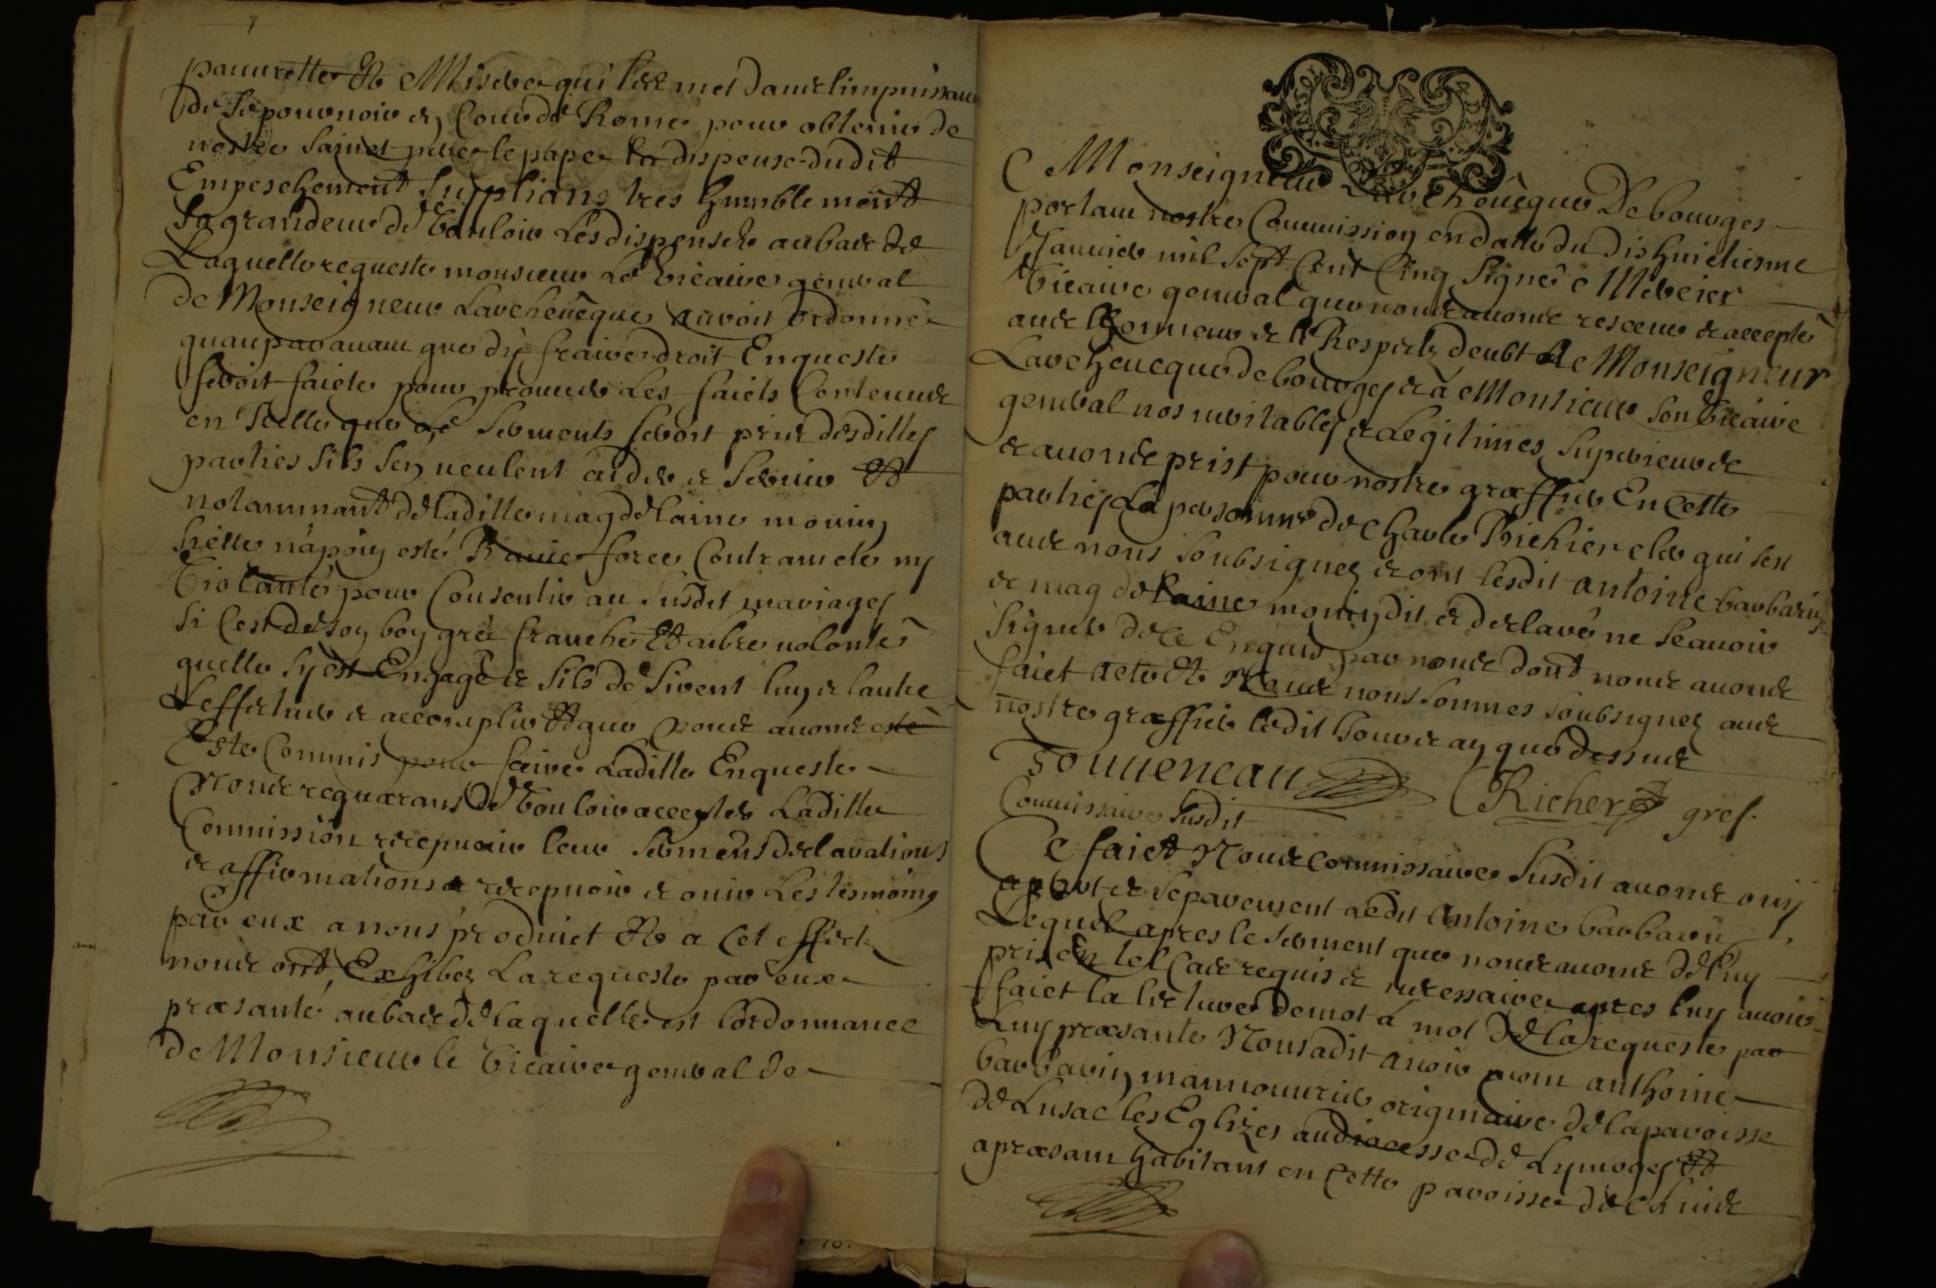 pauurette Et Misere qui les met dans limpuissance
de se pouruoir en Cour de Rome pour obtenir de
nostre sainct pere le pape la dispense dudit
Empeschement supplians tres humblement
sa grandeur de Vouloir les dispenser au bas de
Laquelle requeste monsieur Le Vicaire general
de Monseigneur Larcheuêque auroit ordonné
quauparauant que dy faire droit Enqueste
seroit faicte pour prouuer les faicts Contenus
en Icelle que le serments seroit pris desdittes
parties sils sen ueulent aider & seruir Et
notamment de laditte magdelaine mouin
sielle n'a poin esté Rauie force Contrainte ny
Violanté pour Consentir au susdit mariage
si Cest de son bon gré franche Et libre uolonté
quelle sy est Engagé & sils desirent lun & lautre
Leffectuer & accomplir Et que nous auons esté
Este Commis pour faire Laditte Enqueste
Nous requerans de Vouloir accepter Laditte
Commission recepuoir leur serment declarations
& affirmations & recepuoir & ouir Les tesmoins
par eux a nous produict Et a Cet effect
nous ont Exhibez La requeste par eux
præsanté au bas de laquelle est lordonnance
de Monsieur le Vicaire general de
Monseigneur Larcheuêque De bourges
portant nostre Commission en datte du dishuictiesme
Januier mil sept Cent Cinq signé Mercier
Vicaire general que nous auons resceue & accepté
auec lhonneur & le Respect deubt A Monseigneur
Larcheuecque de bourges & à Monsieur son Vicaire
general nos ueritables & Legitimes superieurs
& auons prist pour nostre græffier En Cette
parties La personne de Charle Richier clerc qui sest
auec nous soubsignez & ont lesdit antoine barbarin
& magdelaine mouin dit & declaré ne sçauoir
signer de ce Enquis par nous dont nous auons
faict acte Et nous sommes soubsignez auec
nostre græffier ledit Jour & an que dessus
Touueneau Richer gref.
Commissaire susdit
Ce faict Nous Commissaire susdit auons ouy
apart & separement ledit Antoine barbarin
Lequel apres le serment que nous auons de luy
pris en tel Cas requis & necessaire apres luy auoir
faict la lecture de mot à mot de la requeste par
Luy præsante Nous a dit auoir nom anthoine
barbarin mannouurier originaire de la paroisse
de Lusac les Eglizes au diocesse de Lymoges Et
apræsant habitant en Cette paroisse de